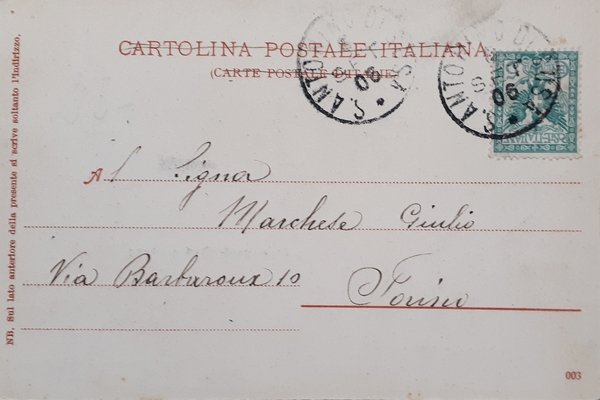 CARTOLINA POSTALE ITALIANA
(CARTE POSTALE D'ITALIE)
S. ANTONINO DI SUSA
06
S. ANTONINO DI SUSA
06
Al Signor
Marchese Giulio
Via Barbaroux 10
Torino
NB. Sul lato anteriore della presente si scrive soltanto l'indirizzo.
003